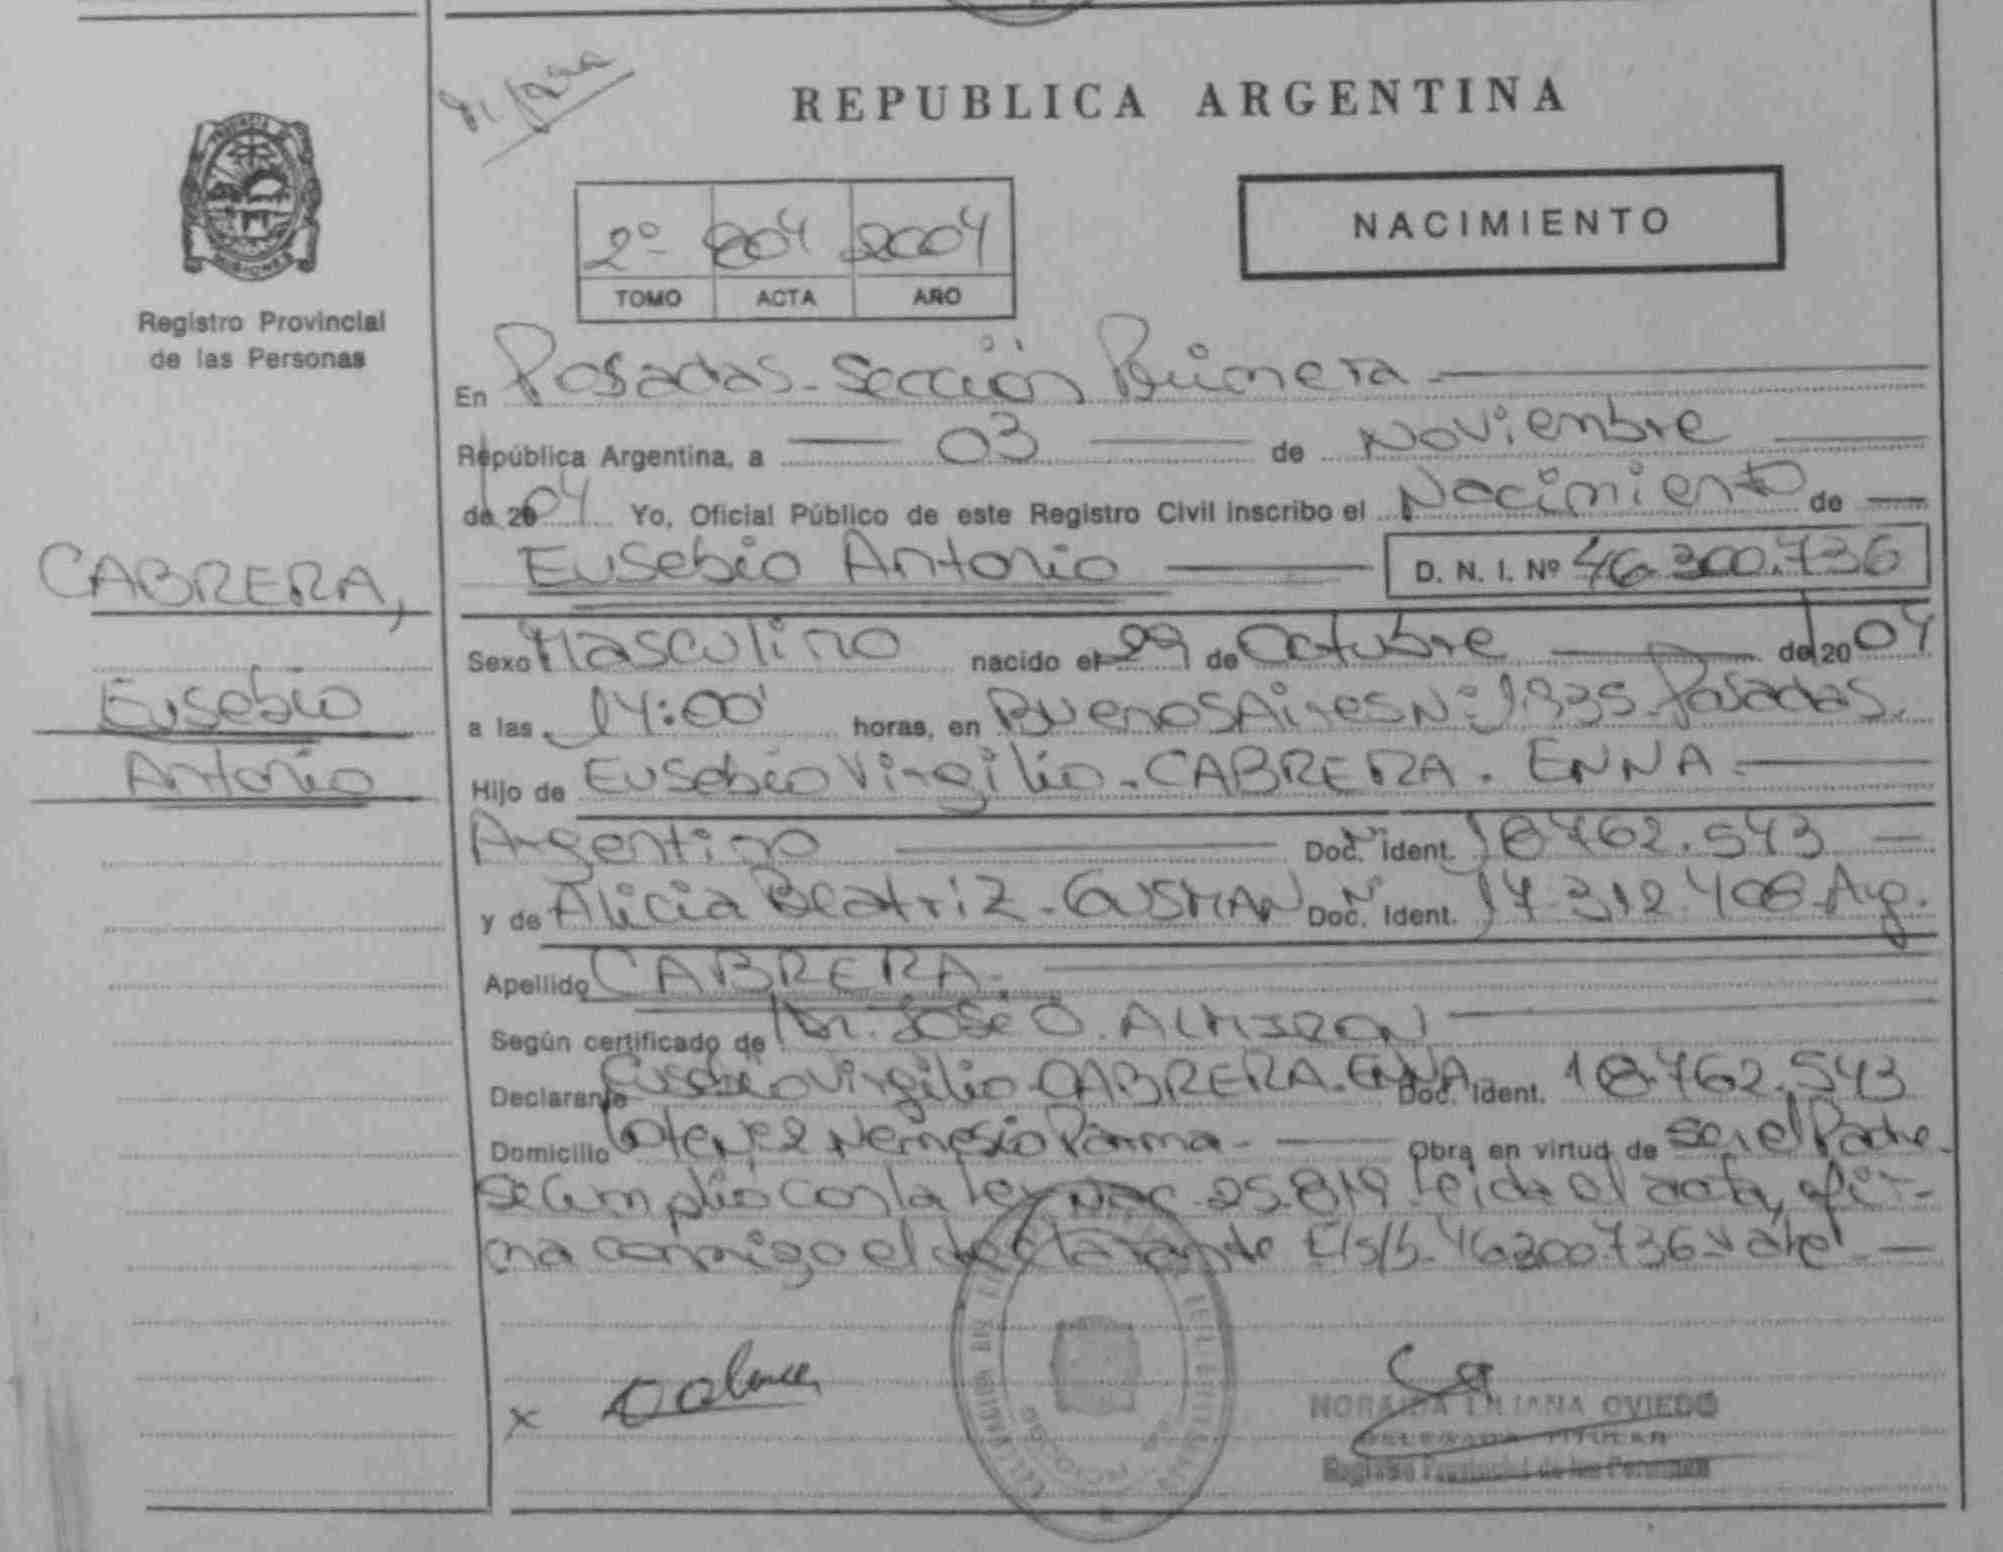 REPUBLICA ARGENTINA
MISIONES
Registro Provincial
de las Personas
2º 2004
TOMO ACTA AÑO
NACIMIENTO
En Posadas - Sección Primera
República Argentina, a 03 de Noviembre
de 2004 Yo, Oficial Público de este Registro Civil inscribo el Nacimiento de
Eusebio Antonio D. N. I. Nº 46.300.736
CABRERA,
Eusebio
Antonio
Sexo Masculino nacido el 29 de Octubre de 2004
a las 14:00 horas, en Buenos Aires Nº 1935 Posadas.
Hijo de Eusebio Virgilio - CABRERA. ENNA
Argentino Doc. Nº Ident. 18.762.543
y de Alicia Beatriz - GUSMAN Doc. Nº Ident. 17.312.408 Arg.
Apellido CABRERA.
Según certificado de Dr. José O. ALMIRON
Declarante Eusebio Virgilio - CABRERA. ENNA Doc. Ident. 18.762.543
Domicilio Lote Nº 2 Nemesio Parma - Obra en virtud de ser el Padre
se cumplió con la Ley Nac. 25.819 leida el acta, fir-
ma conmigo el declarante E/s/b. 46.300.736 vale
x
NORAIDA LILIANA OVIEDO
DELEGADA TITULAR
Registro Provincial de las Personas